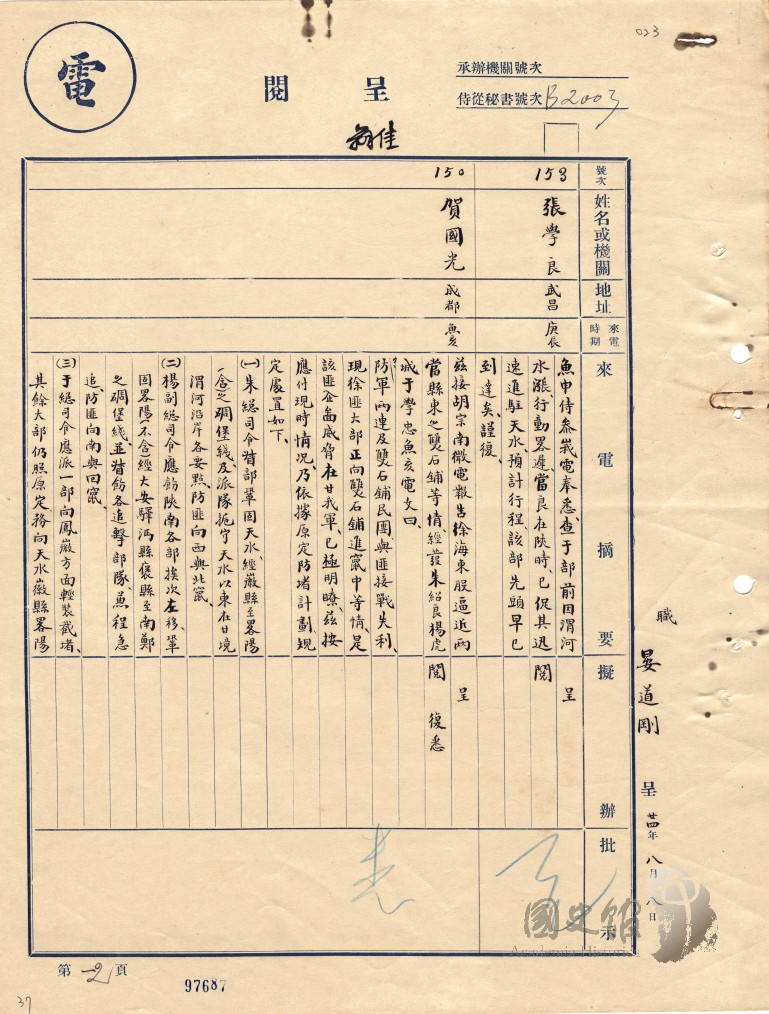 023
電
呈閱
承辦機關號次
侍從秘書號次 B2003
號次
姓名或機關
地址
來電時期
來電摘要
擬辦
批示
153
張學良
武昌
庚辰
魚申侍叅峩電奉悉、查于部前因渭河
水漲、行動畧遲、當良在陝時、已促其迅
速進駐天水、預計行程該部先頭早已
到達矣、謹復、
呈
閱
150
賀國光
成都
魚亥
茲接胡宗南微電報告徐海東股逼近兩
當縣東之雙石舖等情、經發朱紹良楊虎
城于學忠魚亥電文曰、
防軍兩連及雙石舖民團與匪接戰失利、
現徐匪大部正向雙石舖進竄中等情、是
該匪企啚威脅在甘我軍、已極明瞭、茲按
應付現時情況、乃依據原定防堵計劃、規
定處置如下、
(一)朱總司令督部鞏固天水、經徽縣至畧陽
(含)之碉堡綫、及派隊扼守天水以東在甘境
渭河沿岸各要點防匪向西與北竄、
(二)楊副總司令應飭陝南各部挨次左移、鞏
固畧陽(不含)經大安驛沔縣褒縣至南鄭
之碉堡綫、並督飭各追擊部隊、兼程急
追、防匪向南與回竄、
(三)于總司令應派一部向鳳徽方面輕裝截堵、
其餘大部仍照原定務向天水徽縣畧陽
呈
閱
復悉
職
晏道剛
呈
廿四年八月八日
國史館
Academia Historica
第2頁
97687
37